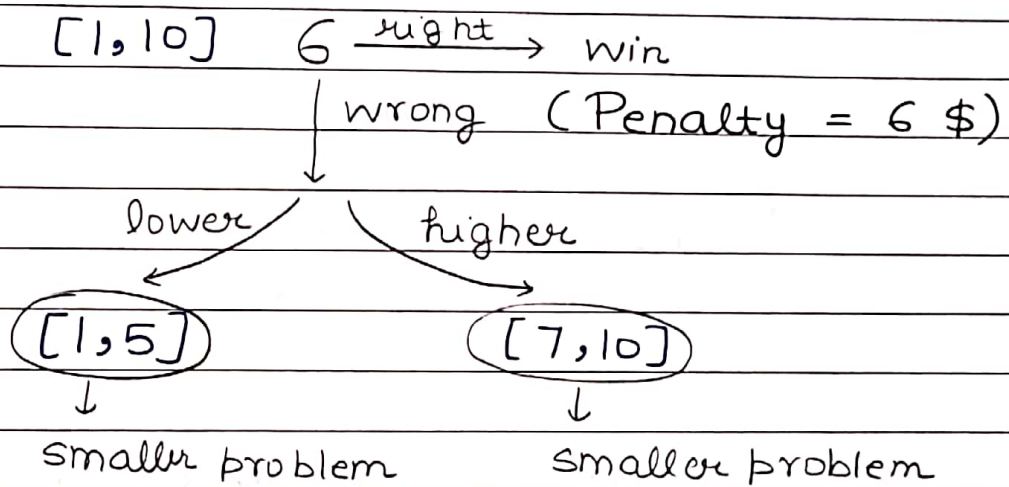 [1,10] 6 right win
wrong (Penalty = 6 $)
lower higher
[1,5] [7,10]
smaller problem smaller problem